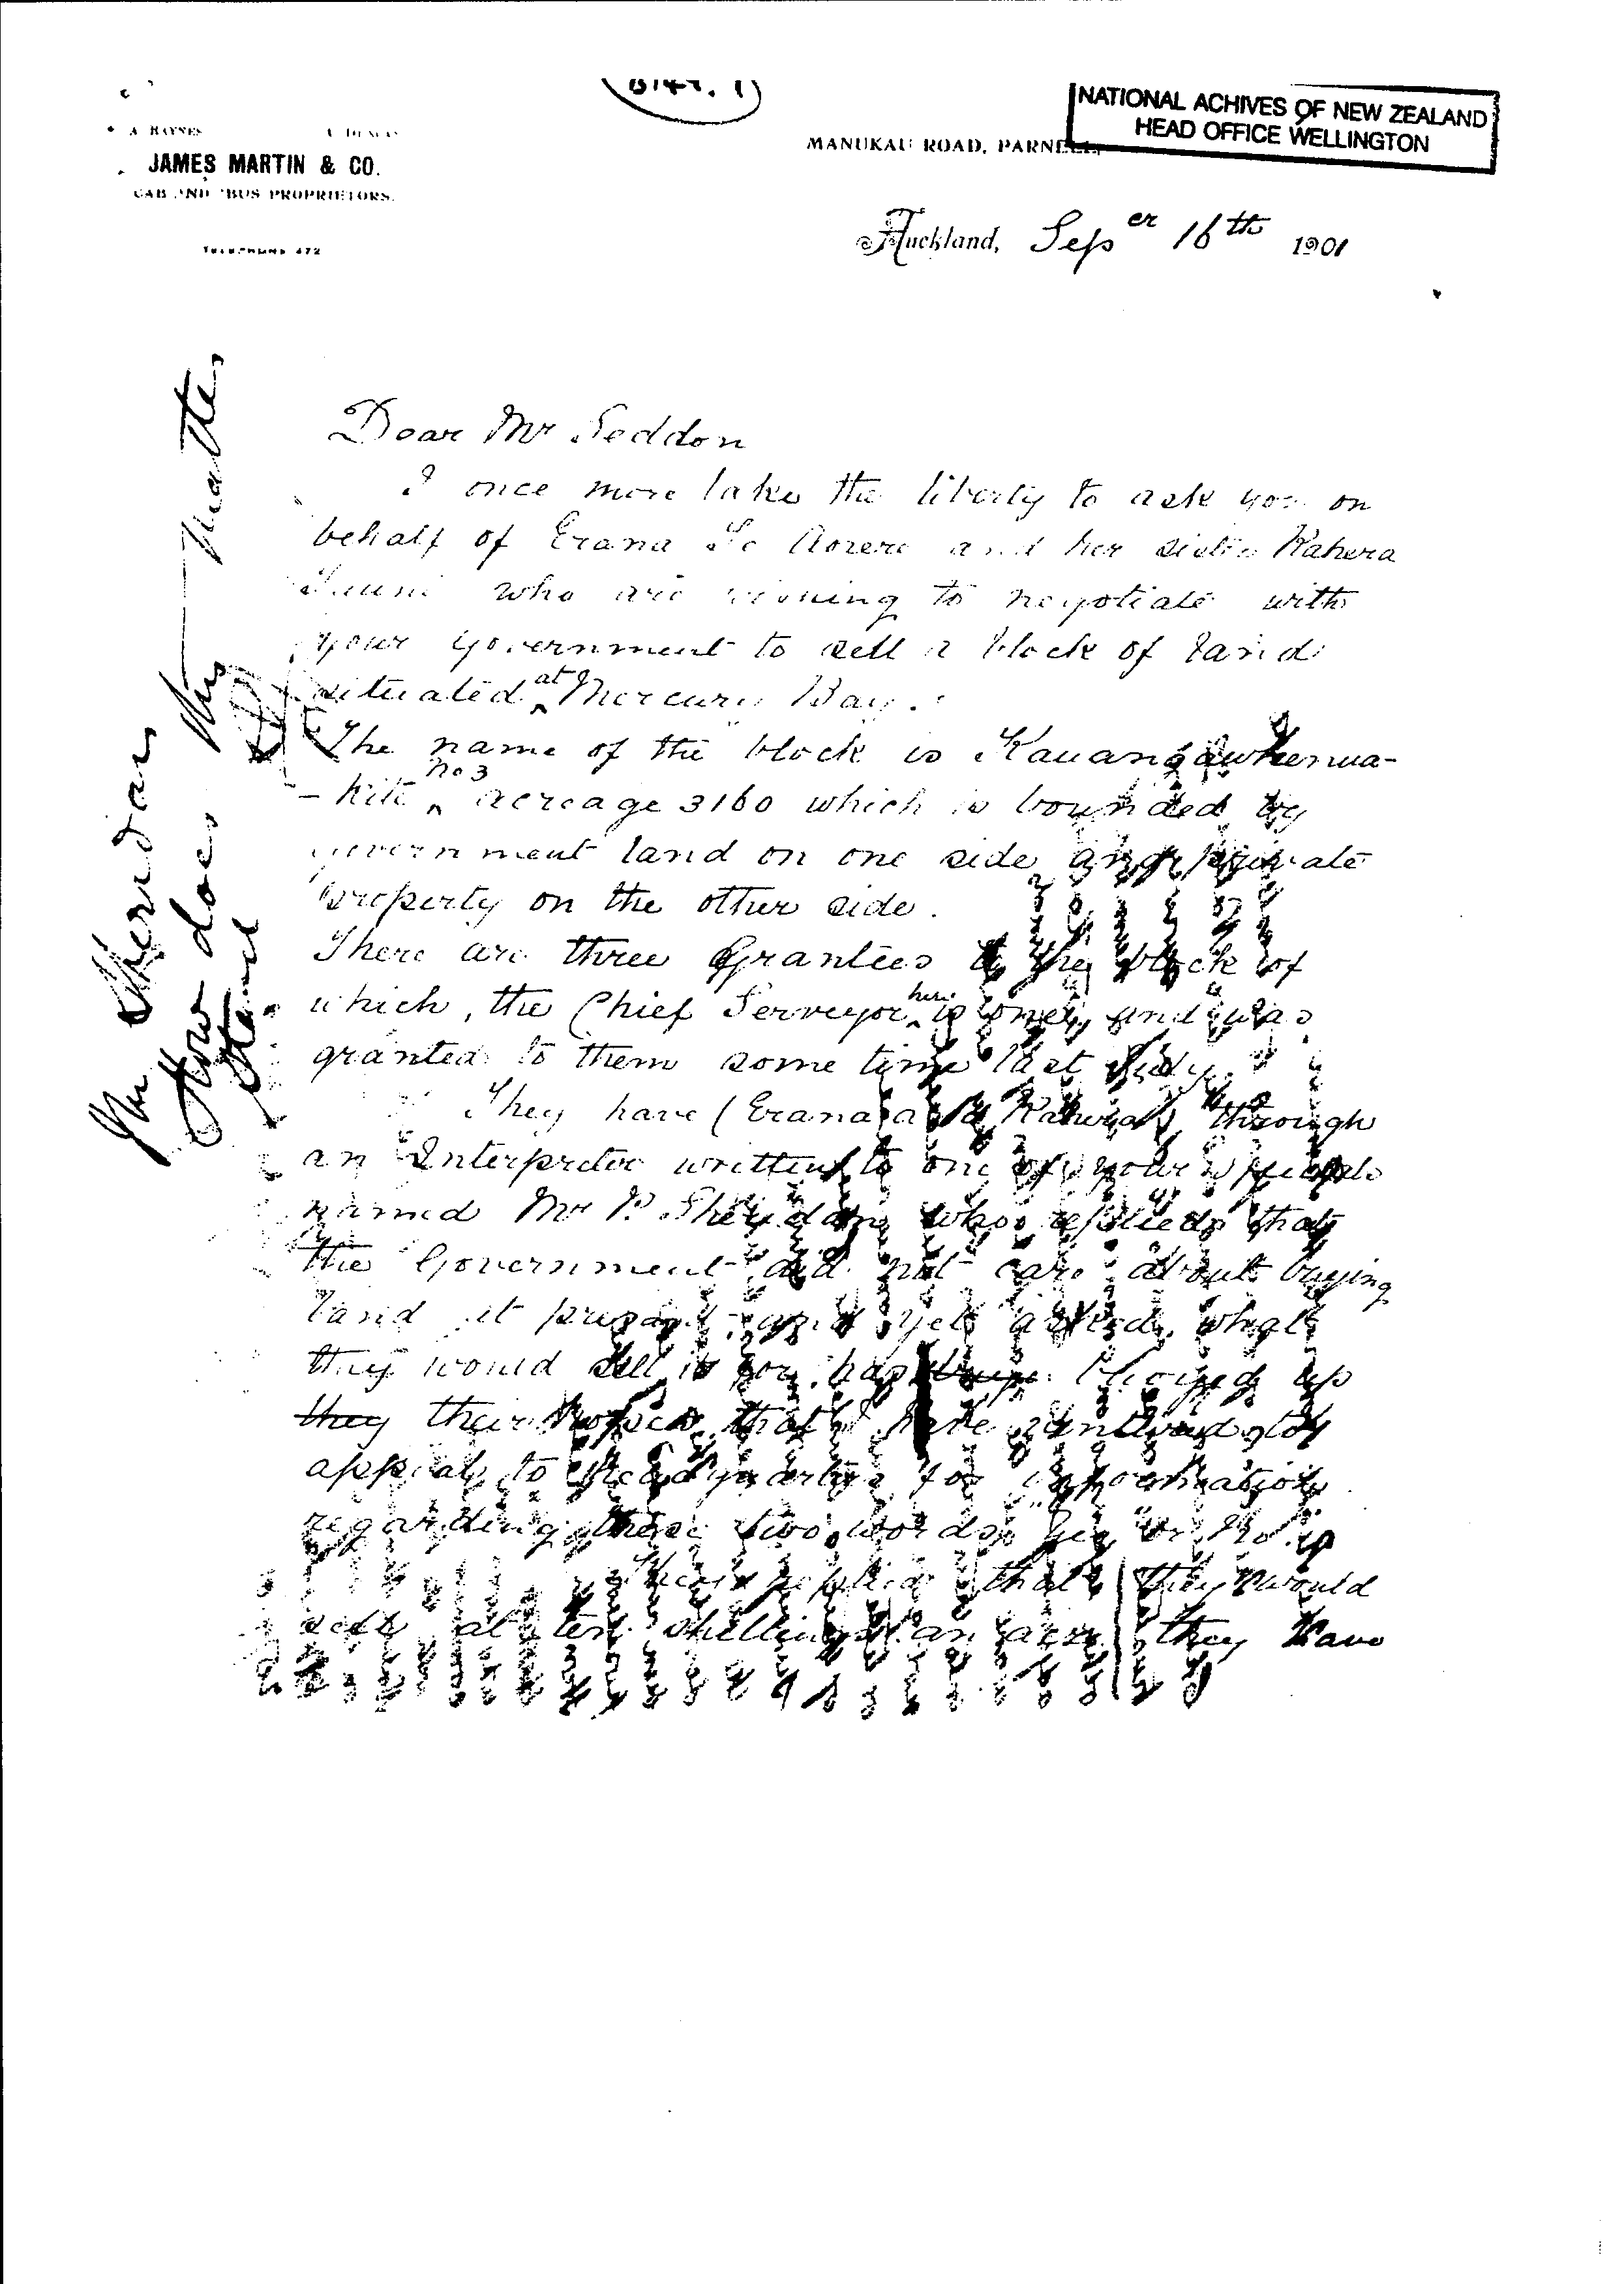 NATIONAL ACHIVES OF NEW ZEALAND
HEAD OFFICE WELLINGTON
A. HAYNES
JAMES MARTIN & CO.
CAB AND 'BUS PROPRIETORS.
TELEPHONE 472
MANUKAU ROAD, PARNELL,
Auckland, Sep er 16th 1901
Dear Mr Seddon
I once more take the liberty to ask you on
behalf of Erana Te Aorere and her sister Rahera
who are wishing to negotiate with
your government to sell a block of land
situated at Mercury Bay.
The name of the block is Kauangawhenua-
-kite no 3 acreage 3160 which is bounded by
government land on one side and private
property on the other side.
There are three Grantees to the block of
which, the Chief Serveyor here is one, and was
granted to them some time last July.
They have (Erana and Rahera) through
an Interpreter written to one of your people
named Mr P. Sheridan who replied that
the Government did not care about buying
land at present and yet asked what
they would sell it for, has bouyed up
they their hopes that I have ventured to
appeal to head quarters for information
regarding these two words "Yes" or "No".
They replied that they would
sell at ten shellings an acre they have
Mr Sheridan
How does this matter
stand